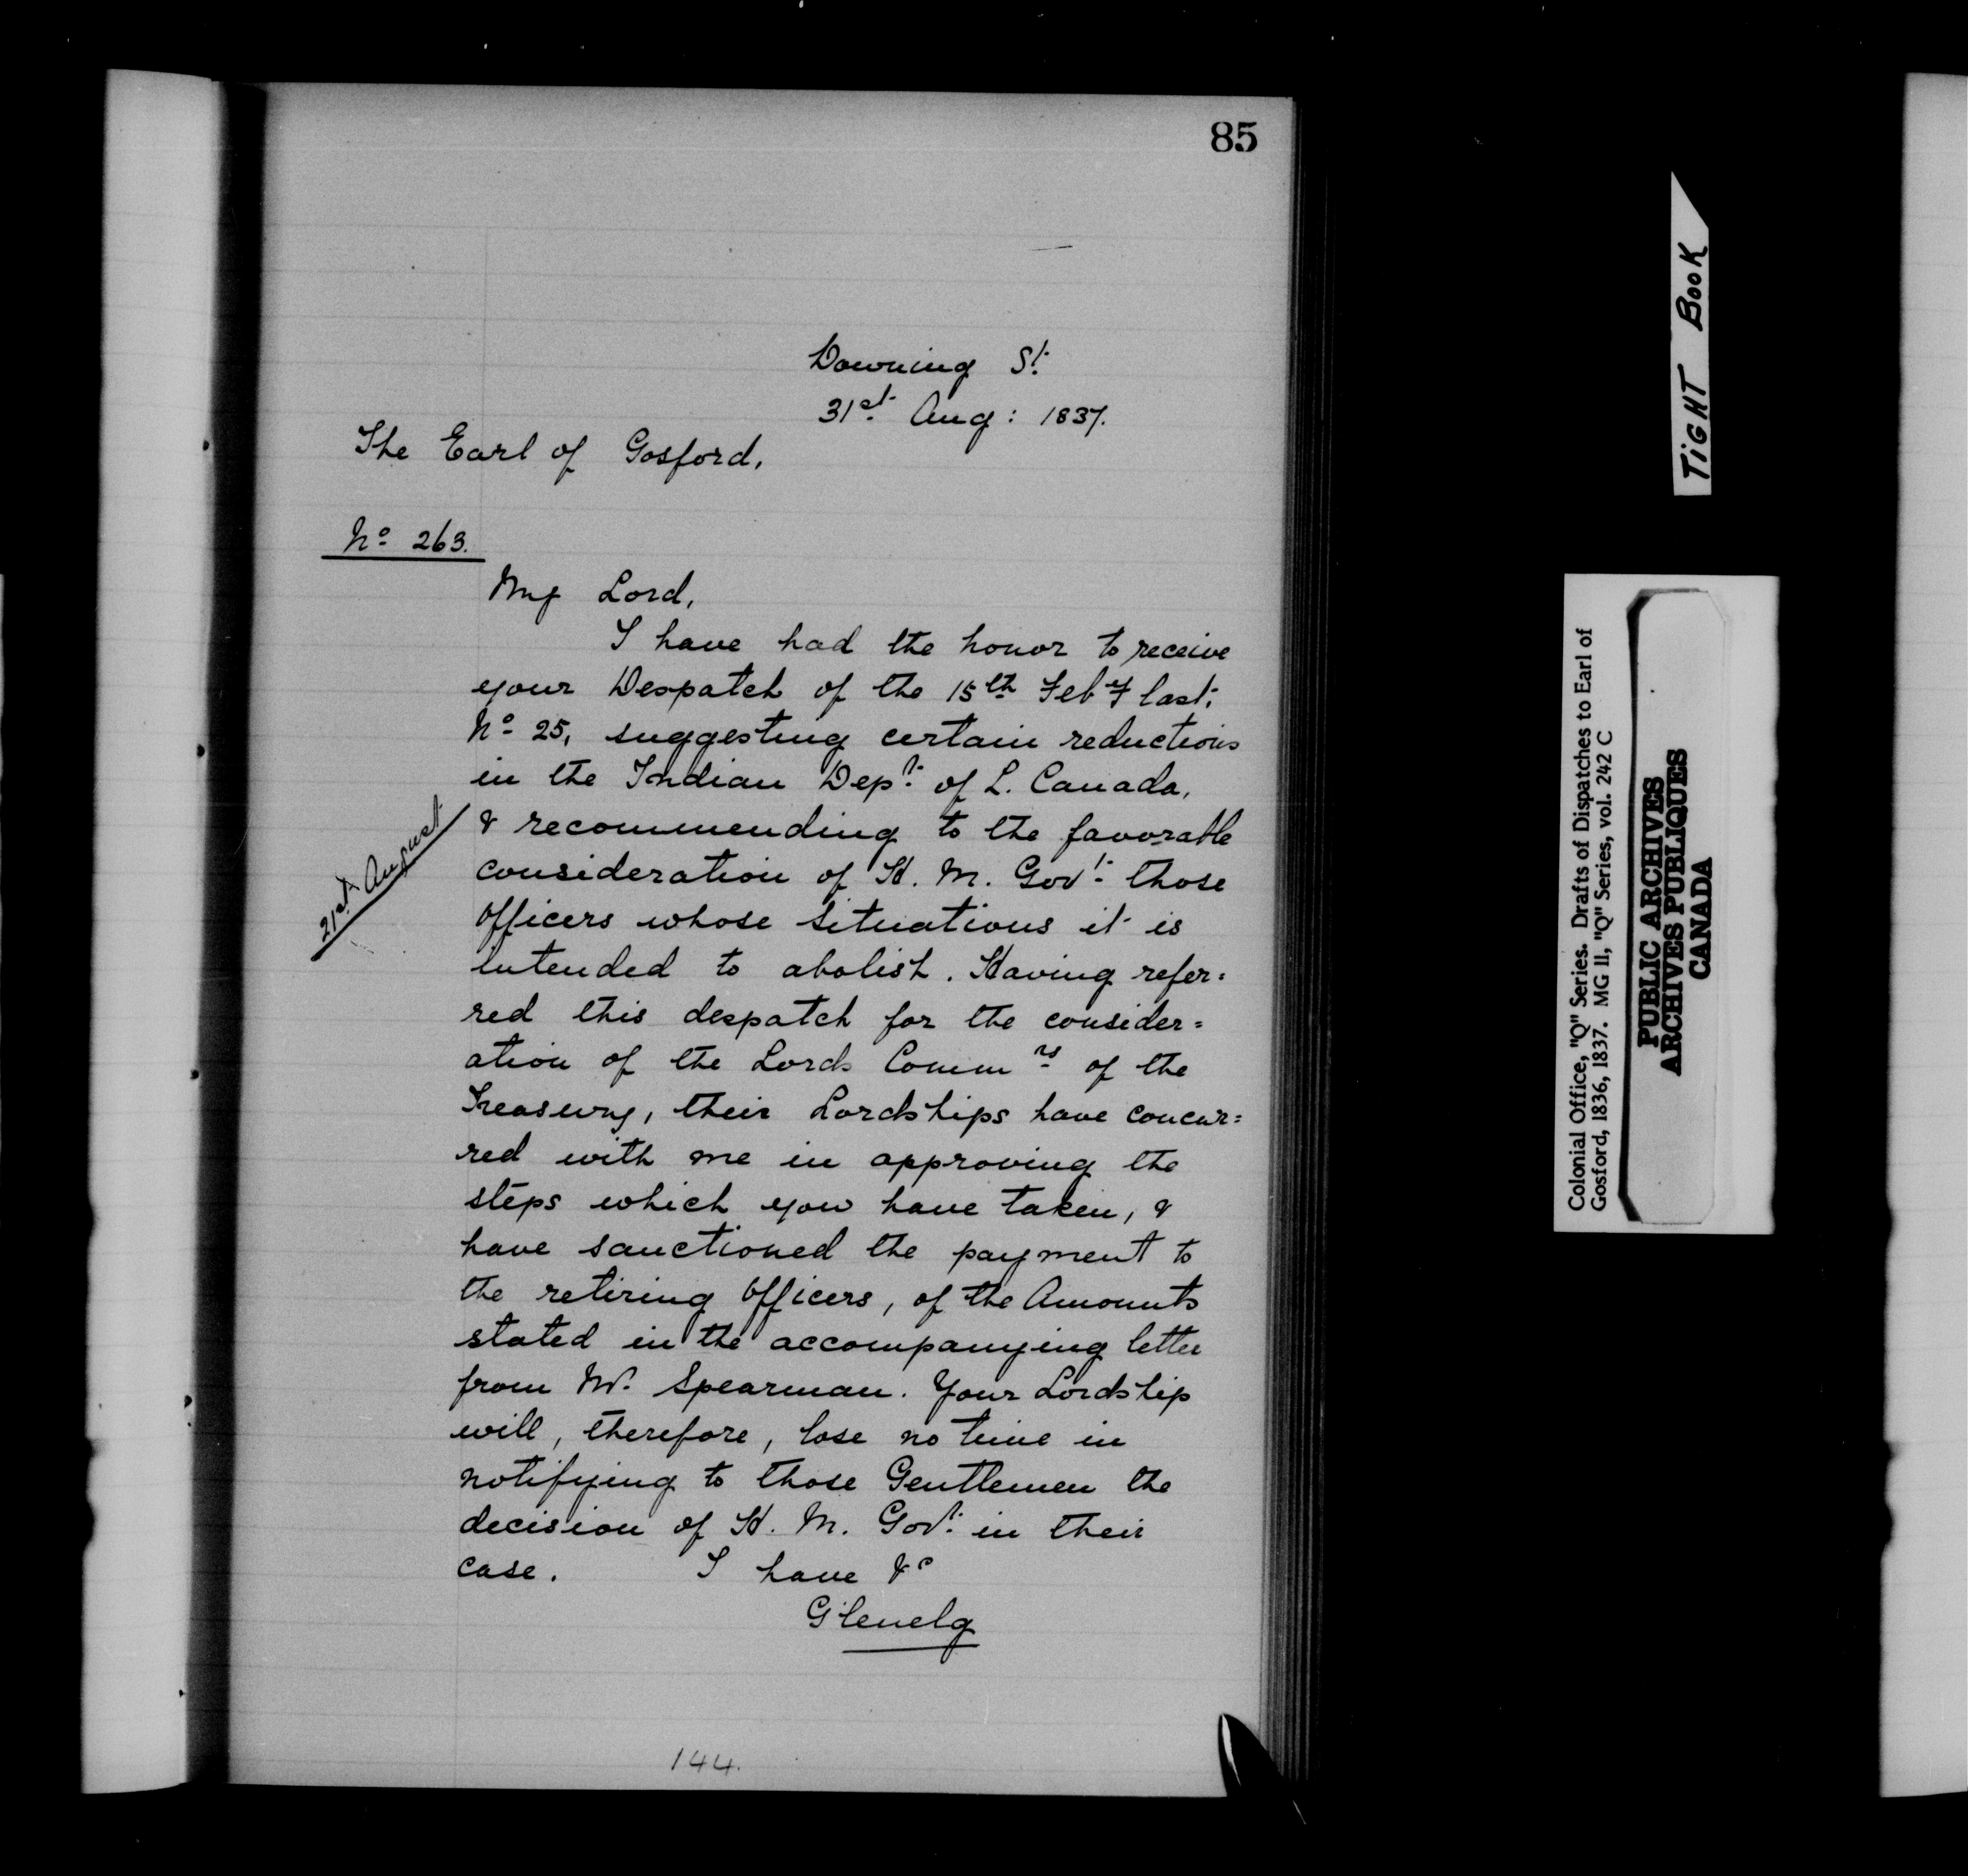 85
Downing St.
31st Aug: 1837.
The Earl of Gosford,
No 263.
My Lord,
I have had the honor to receive
your Despatch of the 15th Feby last,
No 25, suggesting certain reductions
in the Indian Dept of L. Canada,
& recommending to the favorable
consideration of H. M. Govt those
Officers whose situations it is
intended to abolish. Having refer=
red this despatch for the consider=
ation of the Lords Commrs of the
Treasury, their Lordships have concur=
red with me in approving the
steps which you have taken, &
have sanctioned the payment to
the retiring Officers, of the Amounts
stated in the accompanying letter
from Mr. Spearman. Your Lordship
will, therefore, lose no time in
notifying to those Gentlemen the
decision of H. M. Govt in their
case. I have &c
Glenelg
21st August
144.
TIGHT BOOK
Colonial Office, "Q" Series. Drafts of Dispatches to Earl of
Gosford, 1836, 1837. MG 11, "Q" Series, vol. 242 C
PUBLIC ARCHIVES
ARCHIVES PUBLIQUES
CANADA